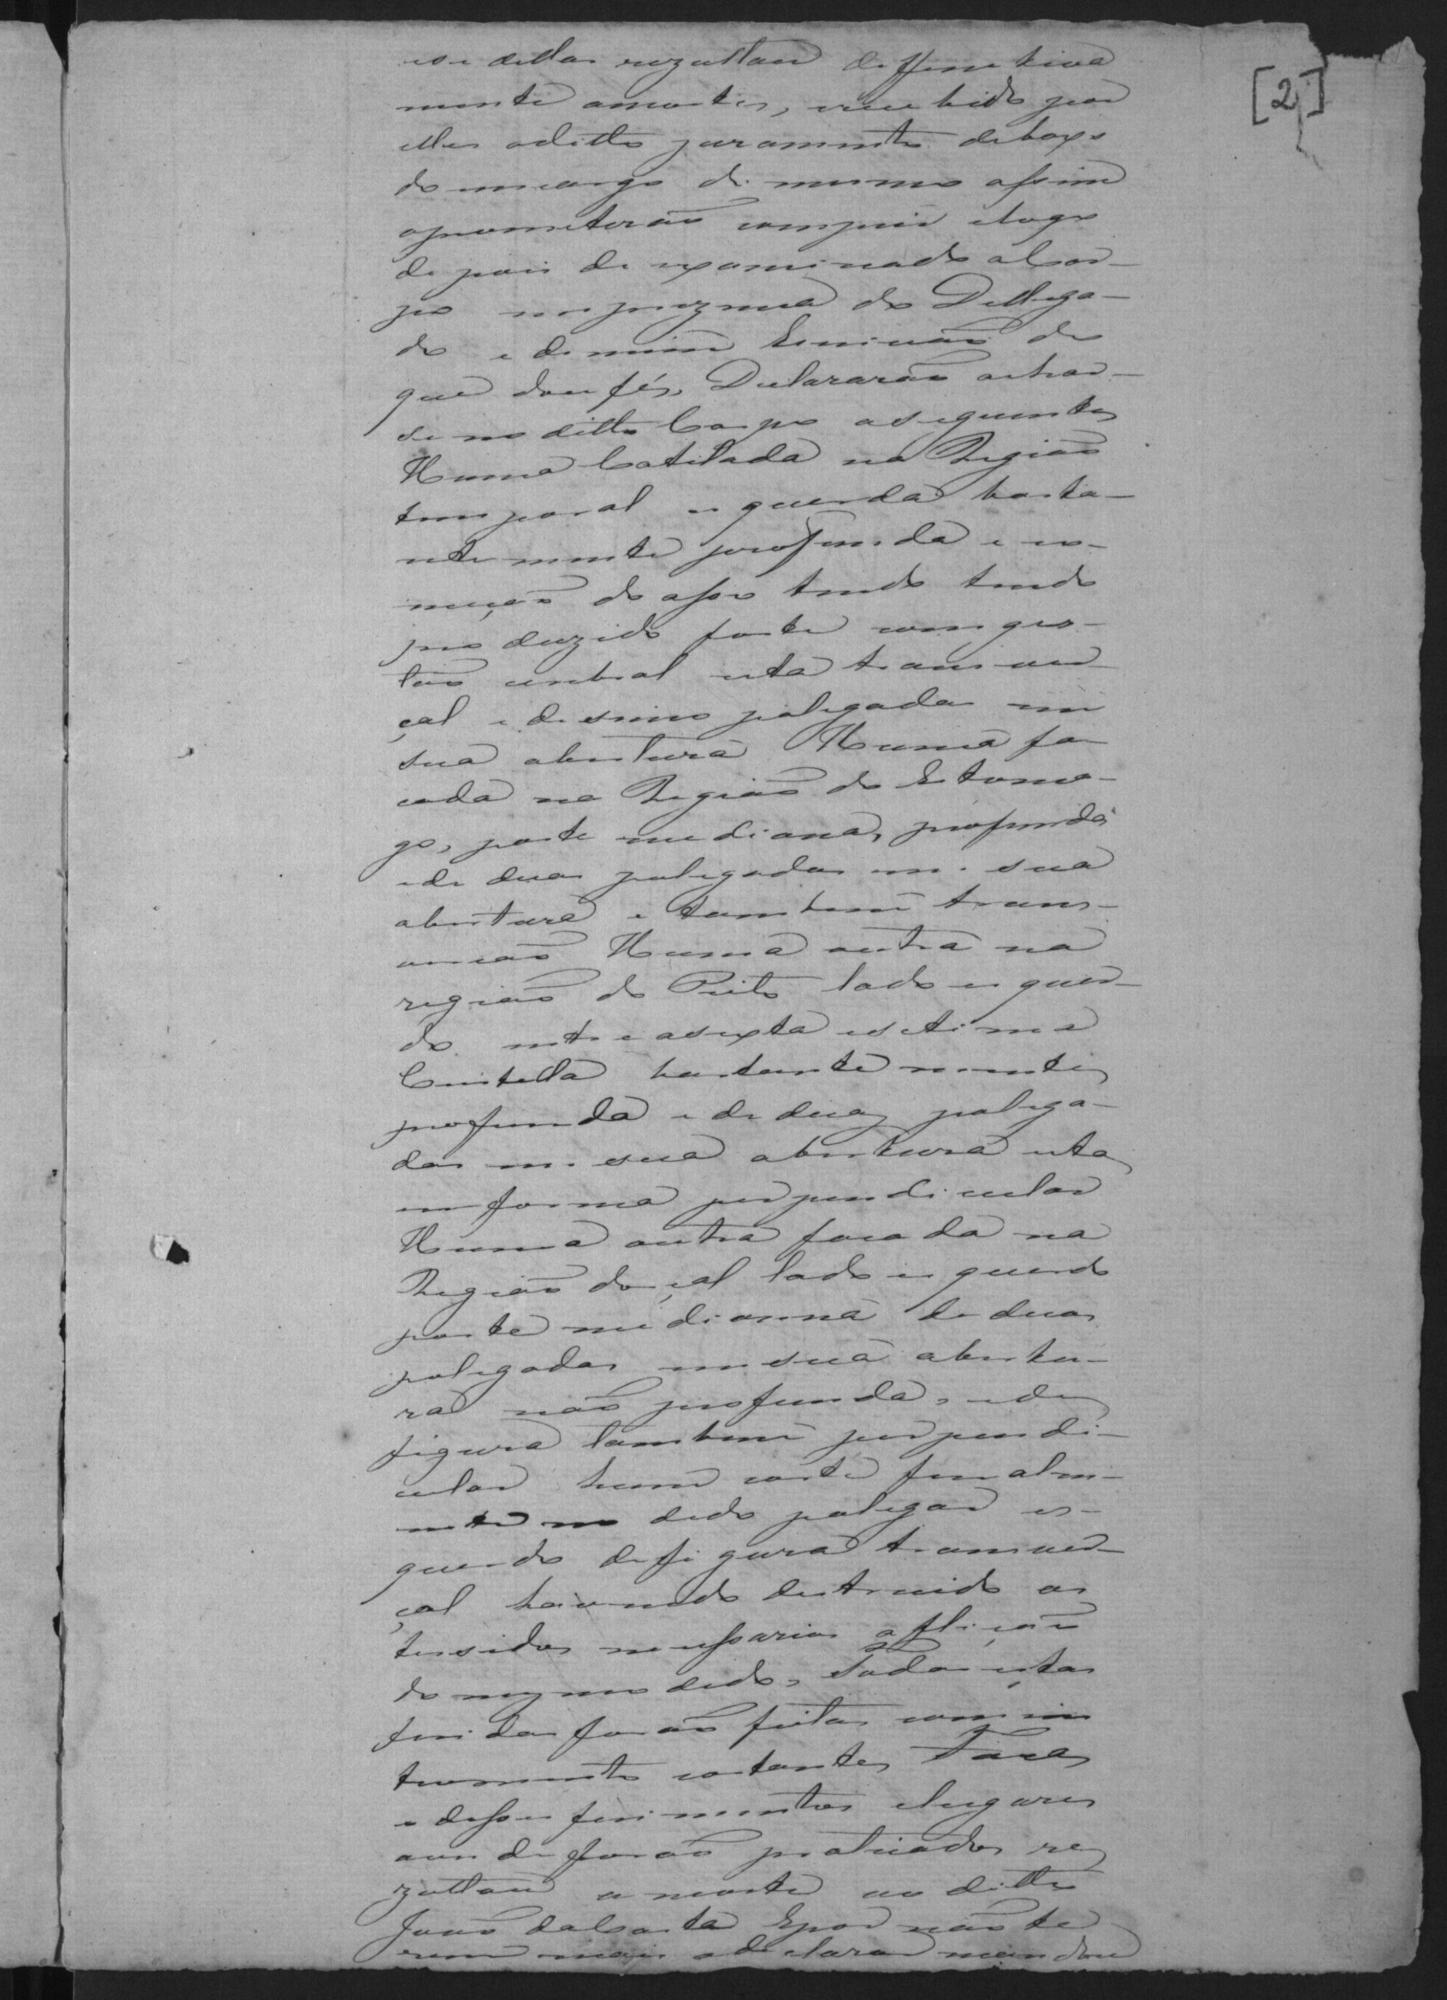 [2]
ese dellas rezultou deffinetiva
mente amorte, recebido por
elles oditto juramento debaxo
do encargo do mesmo assim
oprometerão comprir elogo
depois de examinado oCor-
po em prezença do Dellega-
do e de mim Escrivão do
que dou fé, Declararão achar-
se no ditto Corpo as seguintes
Huma Cotilada na Região
temporal esquerda basta-
ntemente profunda e co-
meção do asso tendo tendo
produzido forte comges-
tão cerebral esta transver-
çal e de sinco polegadas em
sua abertura Huma fa-
cada na Região do Estoma-
go, parte mediana, profunda
e de duas polegadas em sua
abertura e tambem trans-
verçao Huma outra na
região do Peito lado esquer-
do entre asexta esetima
Custella bastante mente
profunda e de duas polega-
das em sua abertura esta
em forma perpendicular
Huma outra facada na
Região dorçal lado esquerdo
parte medianna de duas
polegadas em sua abertu-
ra não profunda, e de
figura tambem perpendi-
cular hum corte finalm-
ente no dedo polegar es-
querdo de figura transver-
çal havendo destruido os
tessidos nessessarios afleição
do mesmo dedo, Todas estas
feridas forão feitas com ins
trumento cortantes Faca
e desses ferimentos elugares
aonde forão praticados re
zultou a morte ao ditto
João daCosta Epor não te
rem mais adeclarar mandou